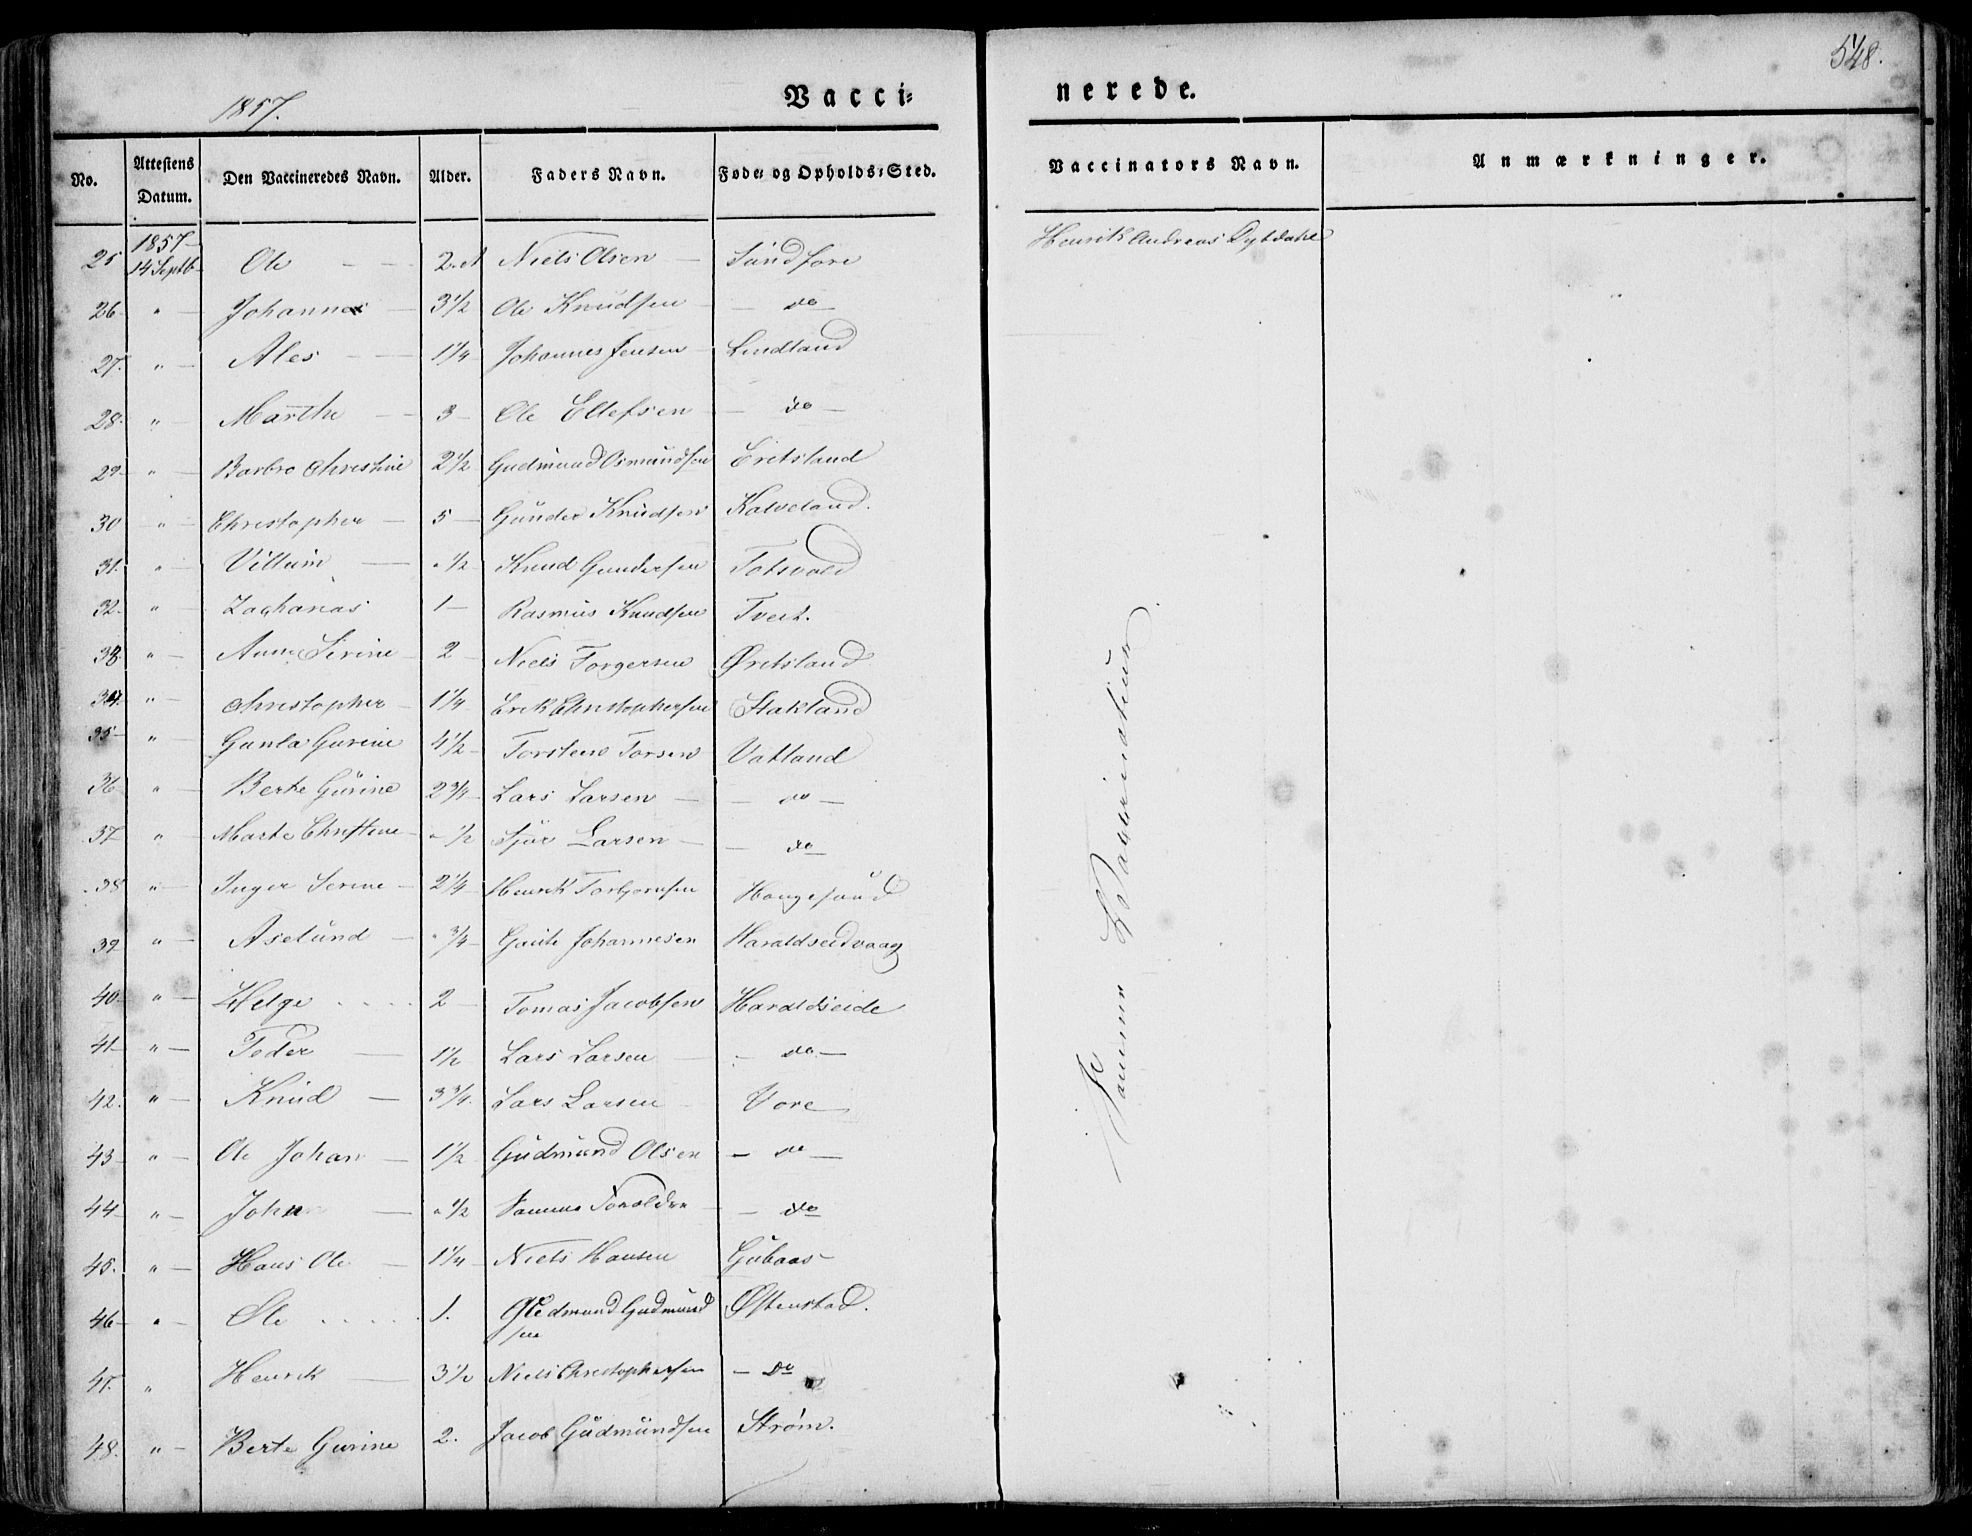 548.
1857.
Vacci=
nerede.
No. Attestens Datum. Den Vaccineredes Navn. Alder. Faders Navn. Føde= og Opholds=Sted. Vaccinators Navn. Anmærkninger.
25 1857 14 Septb. Ole 2 Niels Olsen Sundføre Henrik Andreas Dybdahl
26 " Johannes 3 1/2 Ole Knudsen do
27. " Ales 1 1/4 Johannes Jensen Lindland
28. " Marthe 3 Ole Ellefsen do
29 " Barbro Christine 2 1/2 Gudmund Osmundsen Eretsland
30 " Christopher 5 Gunder Knudsen Kalveland.
31. " Villum " 1/2 Knud Gundersen Totsvold
32. " Zacharias 1 Rasmus Knudsen Tveit.
33. " Anne Serine 2 Niels Torgersen Øretsland
34. " Christopher 1 1/4 Erik Christophersen Stakland
35 " Gunla Gurine 4 1/2 Torsten Torsen Vatland
36 " Berte Gurine 2 3/4 Lars Larsen do
37 " Marte Christine " 1/2 Sjur Larsen do
38 " Inger Serine 2 1/4 Henrik Torbjornsen Haugesund
39 " Aselund " 3/4 Gaute Johannesen Haraldseidvaag
40 " Helge 2 Tomas Jacobsen Haraldseide
41 " Peder 1 1/2 Lars Larsen do
42. " Knud 3 3/4. Lars Larsen Vore
43 " Ole Johan 1 1/2 Gudmund Olsen do
44 " John " 1/2 do
45. " Hans Ole 1 1/4 Niels Hansen Gubaas
46 " Ole 1. Gudmund Gudmundsen Østenstad.
47. " Henrik 3 1/2 Niels Christophersen do
48. " Berte Gurine 2. Jacob Gudmundsen Strøm.
Samme Vaccinateur